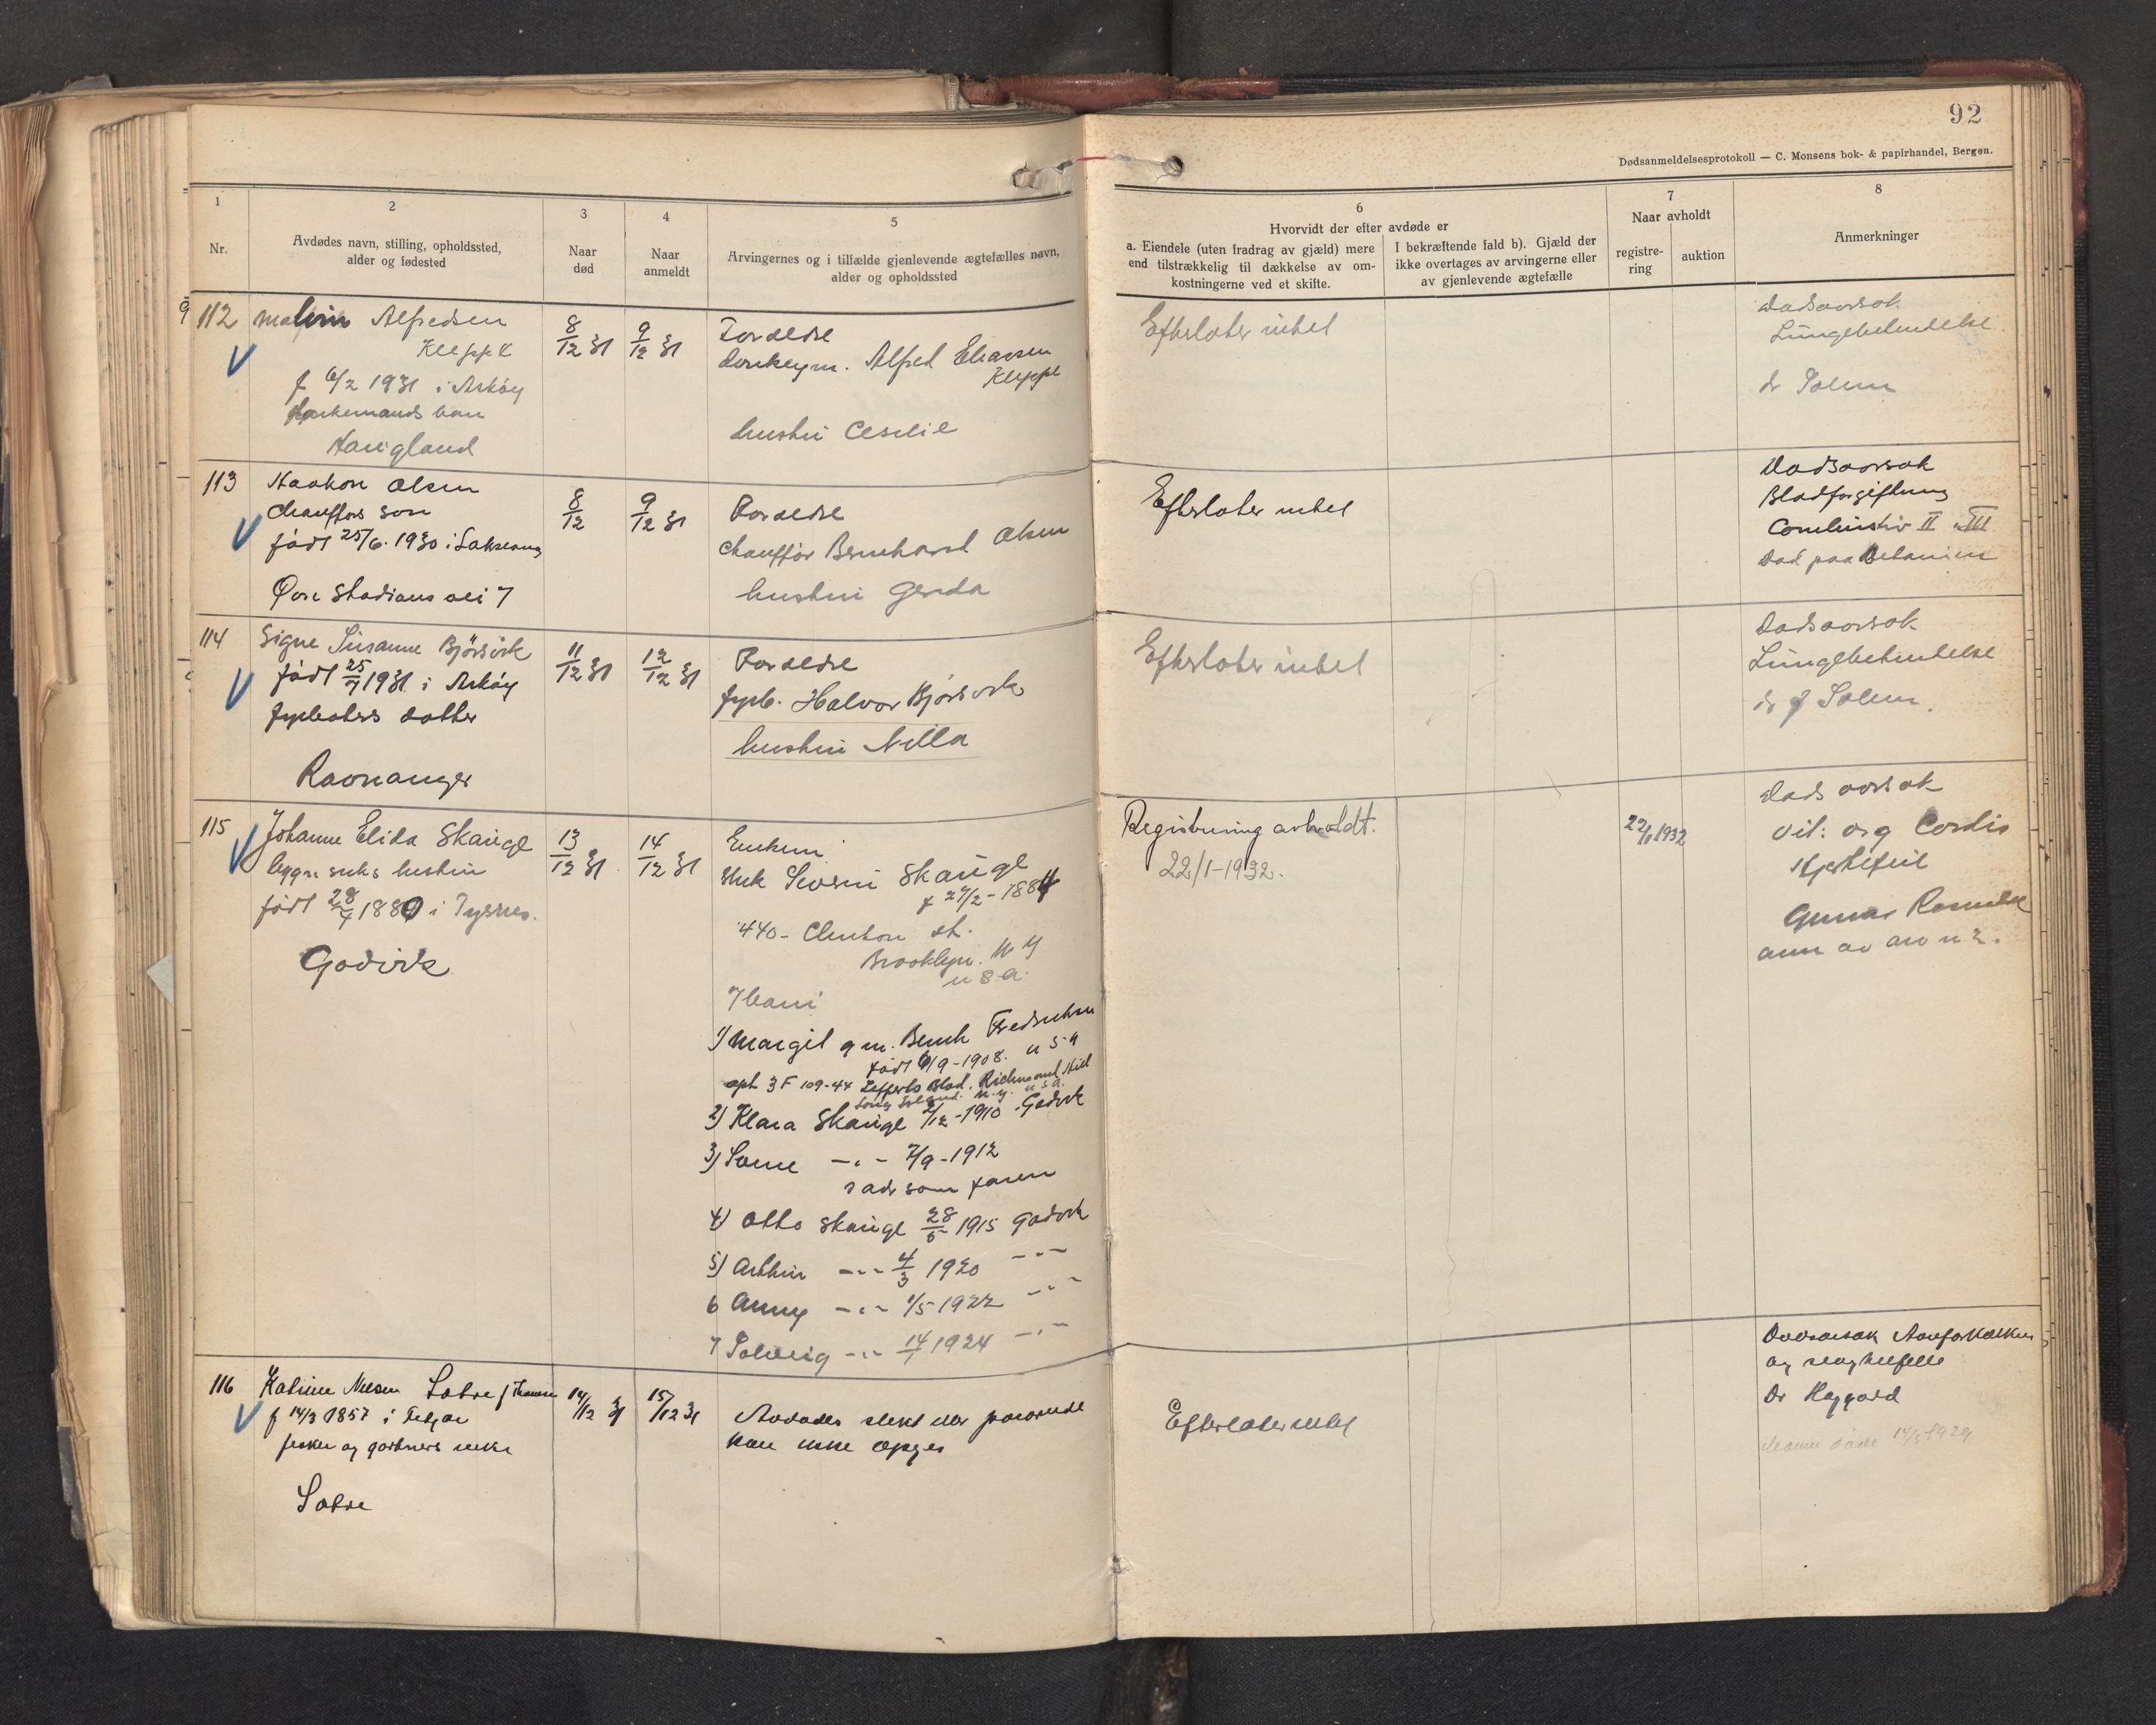 92
Dødsanmeldelsesprotokoll — C. Monsens bok- & papirhandel, Bergen.
1
Nr.
2
Avdødes navn, stilling, opholdssted,
alder og fødested
3
Naar
død
4
Naar
anmeldt
5
Arvingernes og i tilfælde gjenlevende ægtefælles navn,
alder og opholdssted
6
Hvorvidt der efter avdøde er
a. Eiendele (uten fradrag av gjæld) mere
end tilstrækkelig til dækkelse av om-
kostningerne ved et skifte.
I bekræftende fald b). Gjæld der
ikke overtages av arvingerne eller
av gjenlevende ægtefælle
7
Naar avholdt
registre-
ring
auktion
8
Anmerkninger
112
Alfredsen
Kleppe
f 6/2 1931 i Askøy
Haugland
8/12 31
9/12 31
Foreldre
Alfred Eliassen
Kleppe
hustru Cecilie
Efterlater intet
Dødsaarsak
Lungebetendelse
dr Solem
113
Haakon Olsen
Chaufførs søn
født 25/6. 1930 i Laksevaag
Øvre Stadions vei 7
8/12
9/12 31
Foreldre
Chauffør Bernhard Olsen
hustru Gerda
Efterlater intet
Dødsaarsak
Blodforgiftning
Combustio II III
Død paa Betanien
114
Signe Susanne Bjørsvik
født 25/7 1931 i Askøy
fyrbøters datter
Ravnanger
11/12 31
12/12 31
Foreldre
fyrb. Halvor Bjørsvik
hustru Nilla
Efterlater intet
Dødsaarsak
Lungebetendelse
dr J Solem.
115
Johanne Elida Skauge
hustru
født 28/4 1880 i Tysnes.
Godvik
13/12 31.
14/12 31
Enkem
Skauge
f 27/2 - 1884
440 - Clinton st.
Brooklyn. N Y
U S A.
7 barn
1) Margit gm. Bernh Fredriksen
født 6/9 - 1908. U S A
oph 3F 109-44 Lefferts Blvd. Richmond Hill
Long Island. N.Y. U.S.A.
2) Klara Skauge 2/12 - 1910 Godvik
3) 7/9 - 1912
adr som faren
4) Otto Skauge 28/5 1915 Godvik
5) Arthur -"- 4/3 1920 -"-
6 Anny -"- 1/5 1922 -"-
7 Solveig -"- 14/1 1924 -"-
Registrering avholdt.
22/1 - 1932.
22/1 1932
Dødsaarsak
Vit: org Cordis
Hjertefeil
Gunnar
anm av arv n 2.
116
Katrine Nilsen Sotre f Thomsen
f 14/3 1857 i Fitjar
fisker og gartners enke
Sotre
14/12 31
15/12 31
Avdødes slekt eller paarørende
kan ikke opgis
Efterlater intet
Dødsaarsak Aareforkalkning
og
Dr Haggard
Mannen døde 14/5 1929